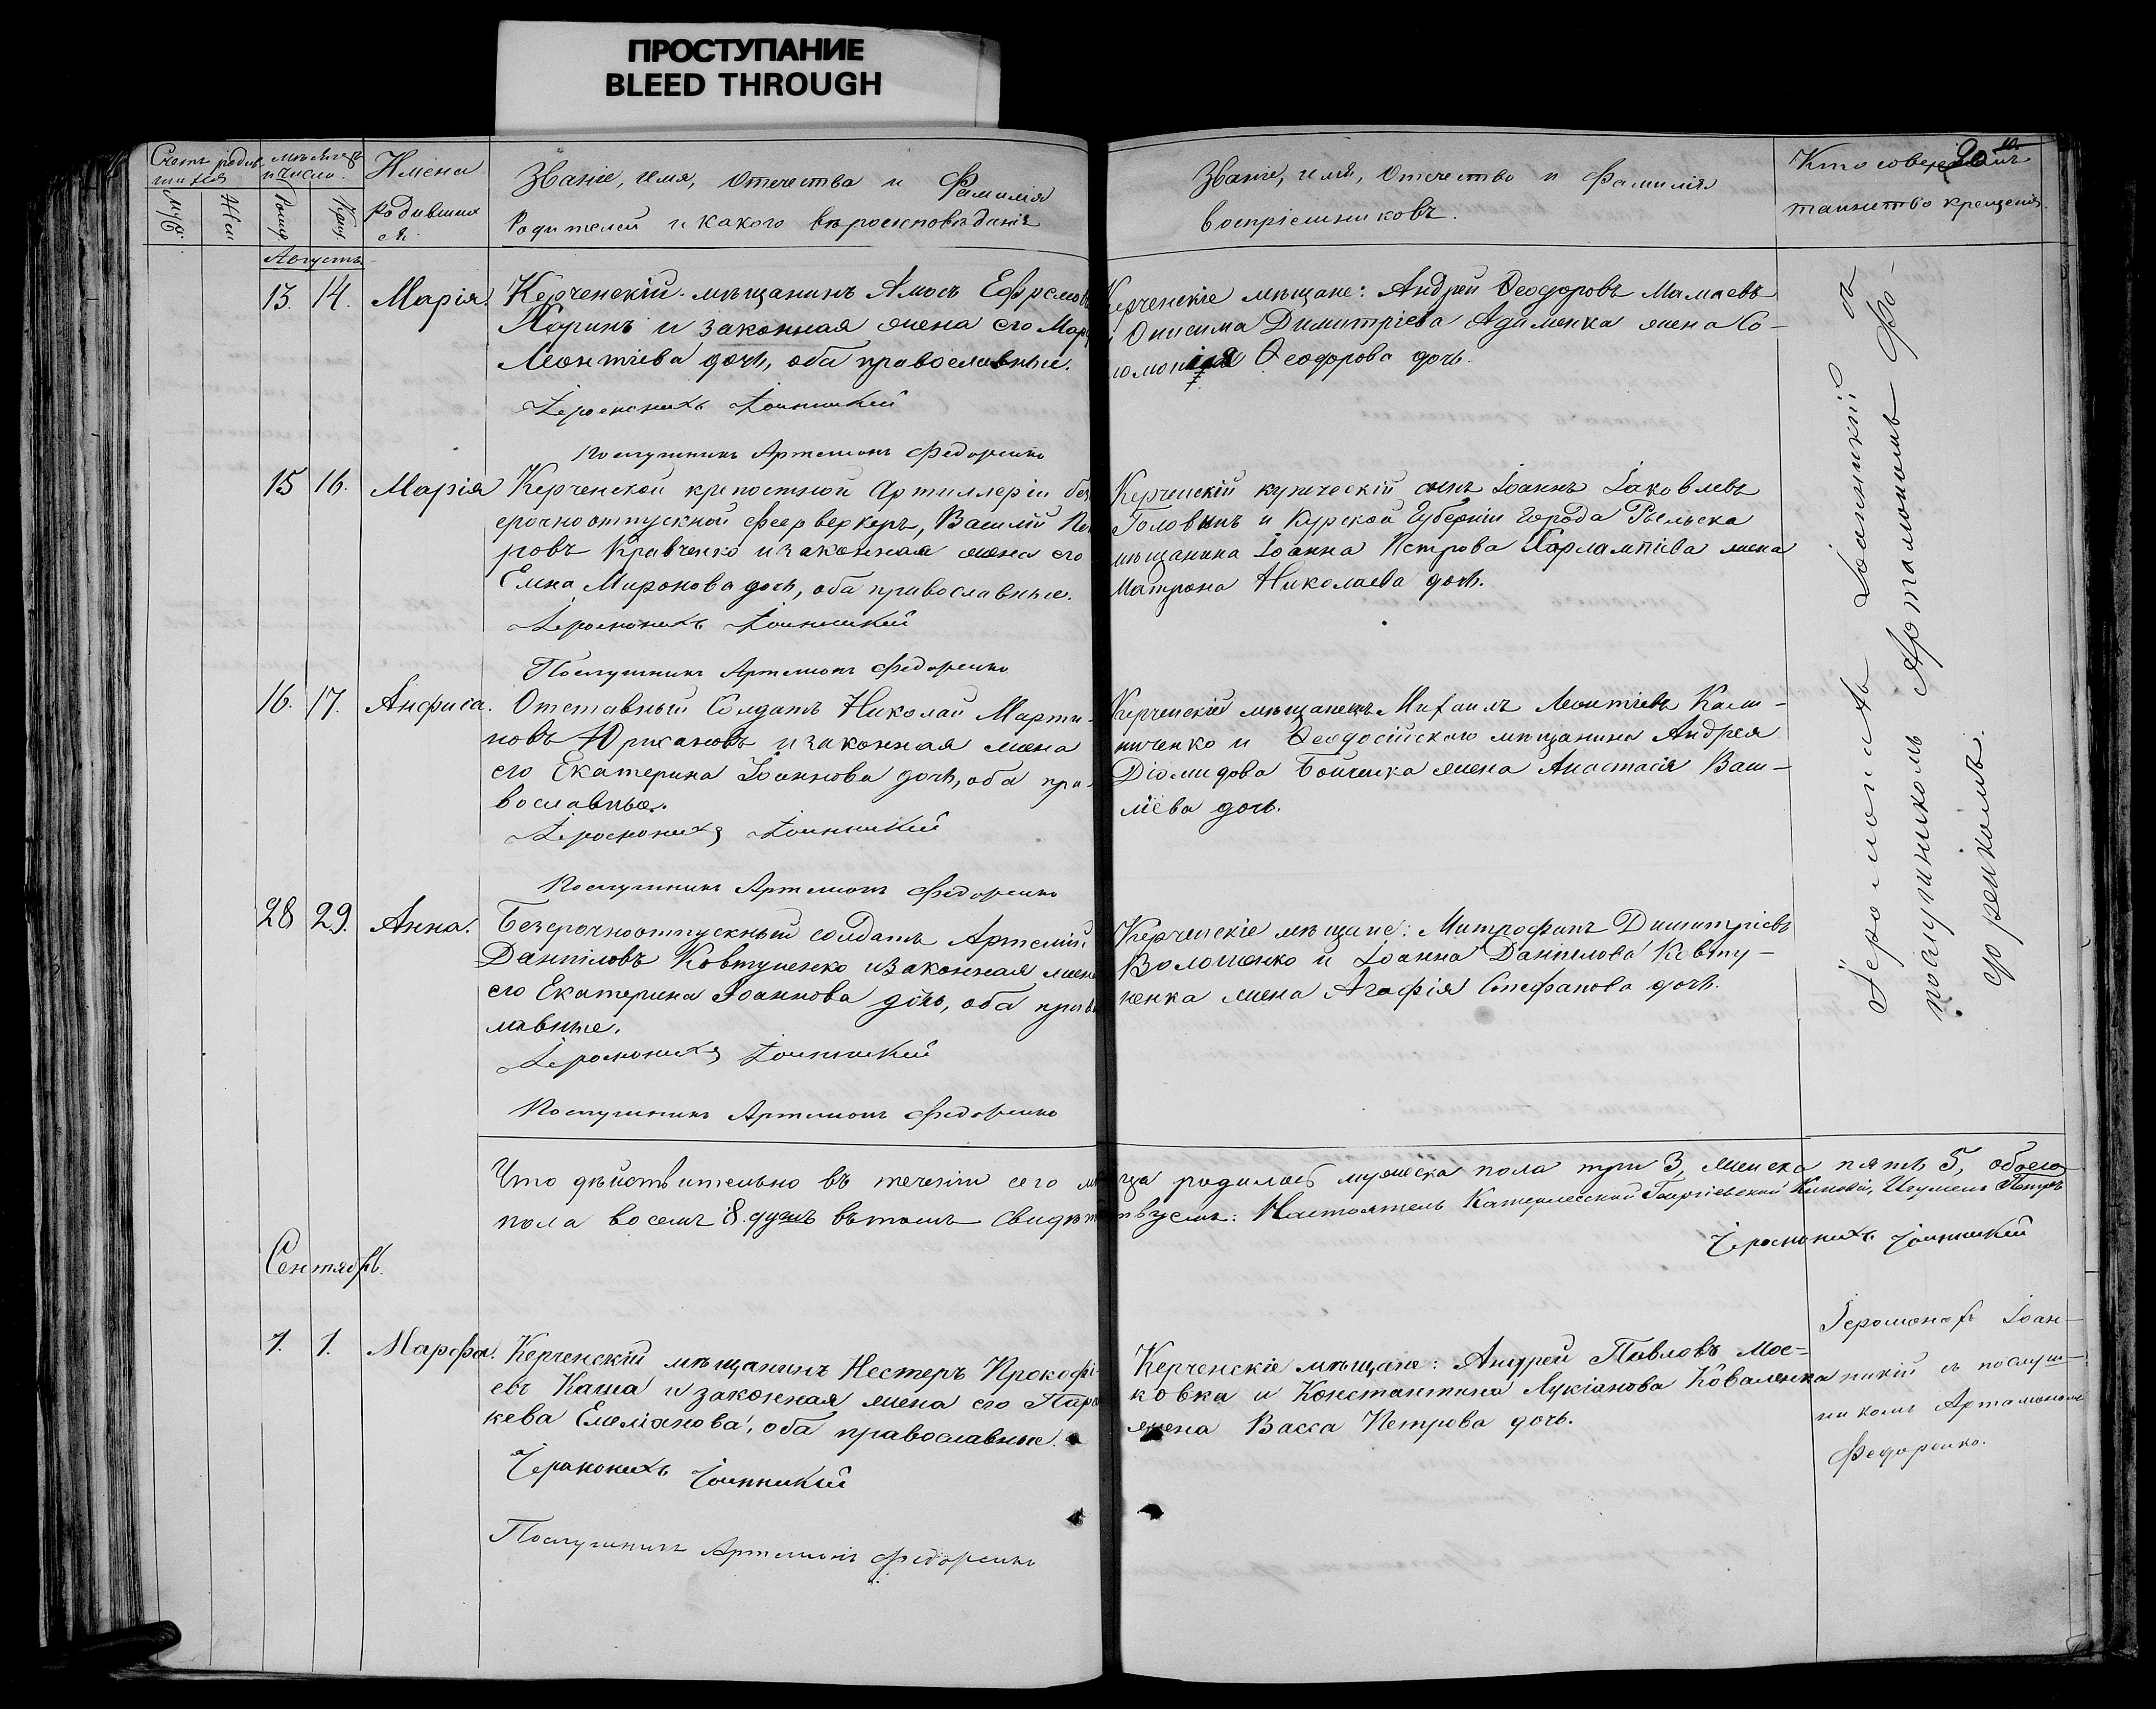 ПРОСТУПАНИЕ
BLEED THROUGH
Счетъ родив-
шихся
Муж.
Жен
мѣсяцъ
и число.
Рожд.
Крещ.
Имена
родивших
ся.
Званіе, имя, отечества и фамилія
Родителей и какого вѣроисповѣданія
Званіе, имя, отечество и фамилія
воспріемниковъ.
Кто совершалъ
таинство крещенія.
Августъ
13. 14. Марія. Керченскій мѣщанинъ Амосъ Ефремов
и законная жена его Мар
Леонтіева дочь, оба православные.
Іеромонахъ Іоанникій
Послушникъ Артемонъ Федоренко
Керченскіе мѣщане: Андрей Ѳеодоровъ Мамаевъ
и Онисима Димитріева Адаменка жена Со-
ломонія Ѳеодорова дочь.
15 16. Марія Керченской крѣпостной Артиллеріи без
срочноотпускной феерверкеръ, Василій Пет
ровъ Кравченко и законная жена его
Елена Миронова дочь, оба православные.
Іеромонахъ Іоанникій
Послушникъ Артемонъ Федоренко
Керченскій купеческій сынъ Іоаннъ Іаковлевъ
Головинъ и Курской Губерніи города Рыльска
мѣщанина Іоанна Петрова Харлампіева жена
Матрона Николаева дочь.
16. 17. Анфиса. Отставный Солдатъ Николай Марти-
новъ и законная жена
его Екатерина Іоаннова дочь, оба пра-
вославные.
Іеромонахъ Іоанникій
Послушникъ Артемонъ Федоренко
Керченскій мѣщанинъ Михаилъ Леонтіевъ Каш-
ниченко и Ѳеодосійскаго мѣщанина Андрея
Діомидова Бойченка жена Анастасія Васи-
ліева дочь.
28 29. Анна. Безсрочноотпускный солдатъ Артемій
Даніиловъ Ковтуненко и законная жена
его Екатерина Іоаннова дочь, оба право
лавные.
Іеромонахъ Іоанникій
Послушникъ Артемонъ Федоренко
Керченскіе мѣщане: Митрофанъ Димитріевъ
Волошенко и Іоанна Даніилова Ковту-
ненка жена Агафія Стефанова дочь.
Іеромонахъ Іоанникій съ
послушникомъ Артамономъ Фѣ-
доренкомъ.
Что дѣйствительно въ теченіи сего мѣсяца родилось мужеска пола три 3, женска пять 5, обоего
пола восемъ 8. душъ въ томъ свидѣтельствуемъ: Настоятель Катерлесской Георгіевской Киновіи, Игуменъ Петръ
Іеромонахъ Іоанникій
Сентябрь.
1. 1. Марфа. Керченскій мѣщанинъ Нестеръ Прокофі-
евъ Каша и законная жена его Пара
кева Емеліанова, оба православные.
Іеромонахъ Іоанникій
Послушникъ Артемонъ Федоренко
Керченскіе мѣщане: Андрей Павловъ Мос-
ковка и Константина Лукіанова Коваленка
жена Васса Петрова дочь.
Іеромонахъ Іоан-
никій съ послуш-
никомъ Артамономъ
Федоренко.